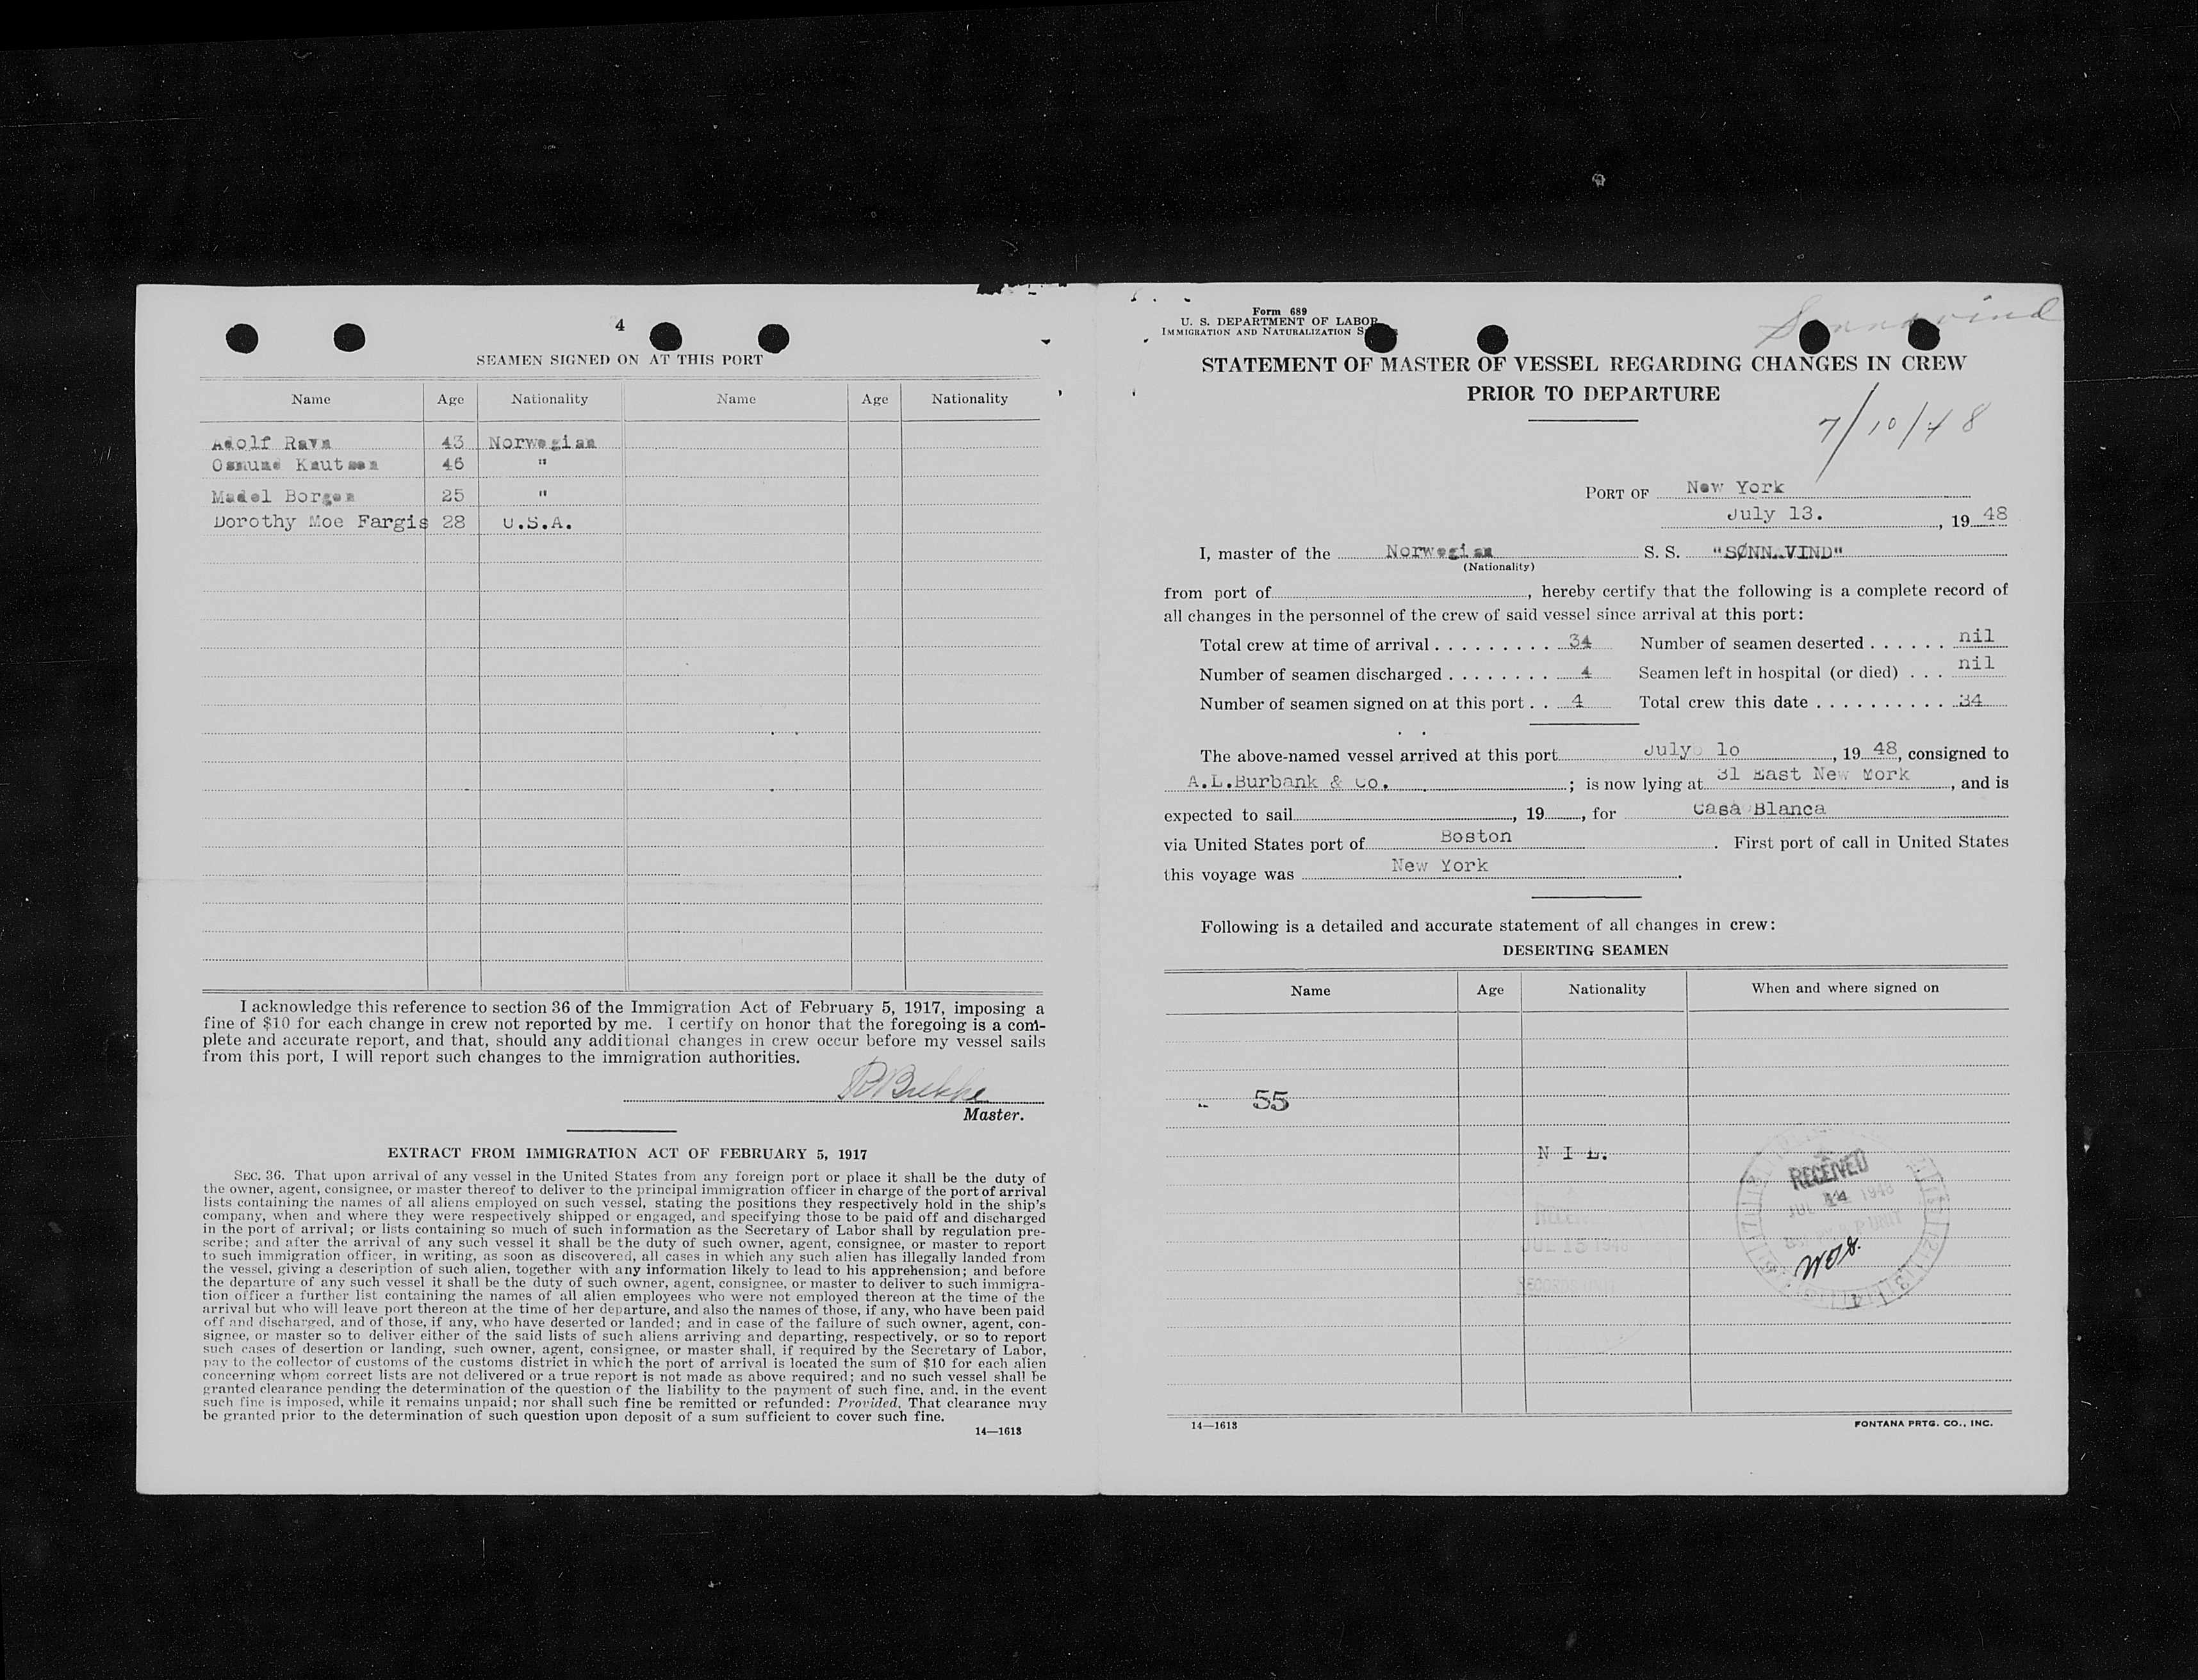 4
SEAMEN SIGNED ON AT THIS PORT
Name Age Nationality Name Age Nationality
Adolf Ravn 43 Norwegian
Osmund Knutsen 46 "
Madel Borgen 25 "
Dorothy Moe Fargis 28 U.S.A.
I acknowledge this reference to section 36 of the Immigration Act of February 5, 1917, imposing a
fine of $10 for each change in crew not reported by me. I certify on honor that the foregoing is a com-
plete and accurate report, and that, should any additional changes in crew occur before my vessel sails
from this port, I will report such changes to the immigration authorities.
Master.
EXTRACT FROM IMMIGRATION ACT OF FEBRUARY 5, 1917
SEC. 36. That upon arrival of any vessel in the United States from any foreign port or place it shall be the duty of
the owner, agent, consignee, or master thereof to deliver to the principal immigration officer in charge of the port of arrival
lists containing the names of all aliens employed on such vessel, stating the positions they respectively hold in the ship's
company, when and where they were respectively shipped or engaged, and specifying those to be paid off and discharged
in the port of arrival; or lists containing so much of such information as the Secretary of Labor shall by regulation pre-
scribe; and after the arrival of any such vessel it shall be the duty of such owner, agent, consignee, or master to report
to such immigration officer, in writing, as soon as discovered, all cases in which any such alien has illegally landed from
the vessel, giving a description of such alien, together with any information likely to lead to his apprehension; and before
the departure of any such vessel it shall be the duty of such owner, agent, consignee, or master to deliver to such immigra-
tion officer a further list containing the names of all alien employees who were not employed thereon at the time of the
arrival but who will leave port thereon at the time of her departure, and also the names of those, if any, who have been paid
off and discharged, and of those, if any, who have deserted or landed; and in case of the failure of such owner, agent, con-
signee, or master so to deliver either of the said lists of such aliens arriving and departing, respectively, or so to report
such cases of desertion or landing, such owner, agent, consignee, or master shall, if required by the Secretary of Labor,
pay to the collector of customs of the customs district in which the port of arrival is located the sum of $10 for each alien
concerning whom correct lists are not delivered or a true report is not made as above required; and no such vessel shall be
granted clearance pending the determination of the question of the liability to the payment of such fine, and, in the event
such fine is imposed, while it remains unpaid; nor shall such fine be remitted or refunded: Provided, That clearance may
be granted prior to the determination of such question upon deposit of a sum sufficient to cover such fine.
14—1613
Form 689
U. S. DEPARTMENT OF LABOR
IMMIGRATION AND NATURALIZATION
Sonnavind
STATEMENT OF MASTER OF VESSEL REGARDING CHANGES IN CREW
PRIOR TO DEPARTURE
7/10/48
PORT OF New York
July 13. , 19 48
I, master of the Norwegian S. S. "SØNNAVIND"
(Nationality)
from port of , hereby certify that the following is a complete record of
all changes in the personnel of the crew of said vessel since arrival at this port:
Total crew at time of arrival . . . . . . . . . 34 Number of seamen deserted . . . . . . nil
Number of seamen discharged . . . . . . . . 4 Seamen left in hospital (or died) . . . nil
Number of seamen signed on at this port . . 4 Total crew this date . . . . . . . . . . . 34
The above-named vessel arrived at this port July 10 , 19 48, consigned to
A.L.Burbank & Co. ; is now lying at 31 East New York , and is
expected to sail , 19 , for Casa Blanca
via United States port of Boston . First port of call in United States
this voyage was New York .
Following is a detailed and accurate statement of all changes in crew:
DESERTING SEAMEN
Name Age Nationality When and where signed on
55
N I L.
RECEIVED
JUL 14 1948
JUL 15 1948
RECORDS UNIT
14—1613
FONTANA PRTG. CO., INC.